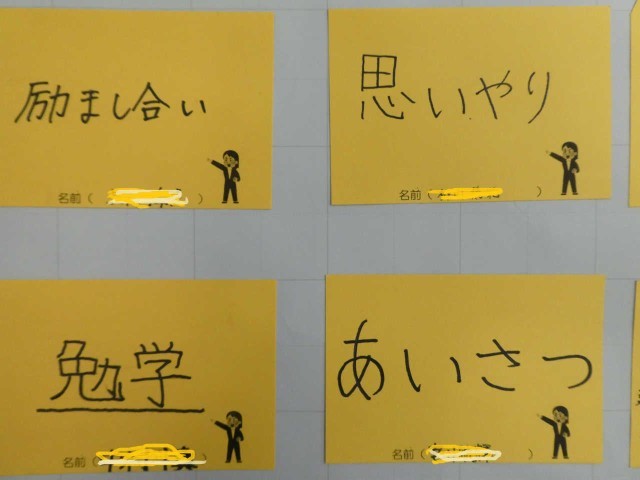 励まし合い
名前( )
思いやり
名前( )
勉学
名前( )
あいさつ
名前( )